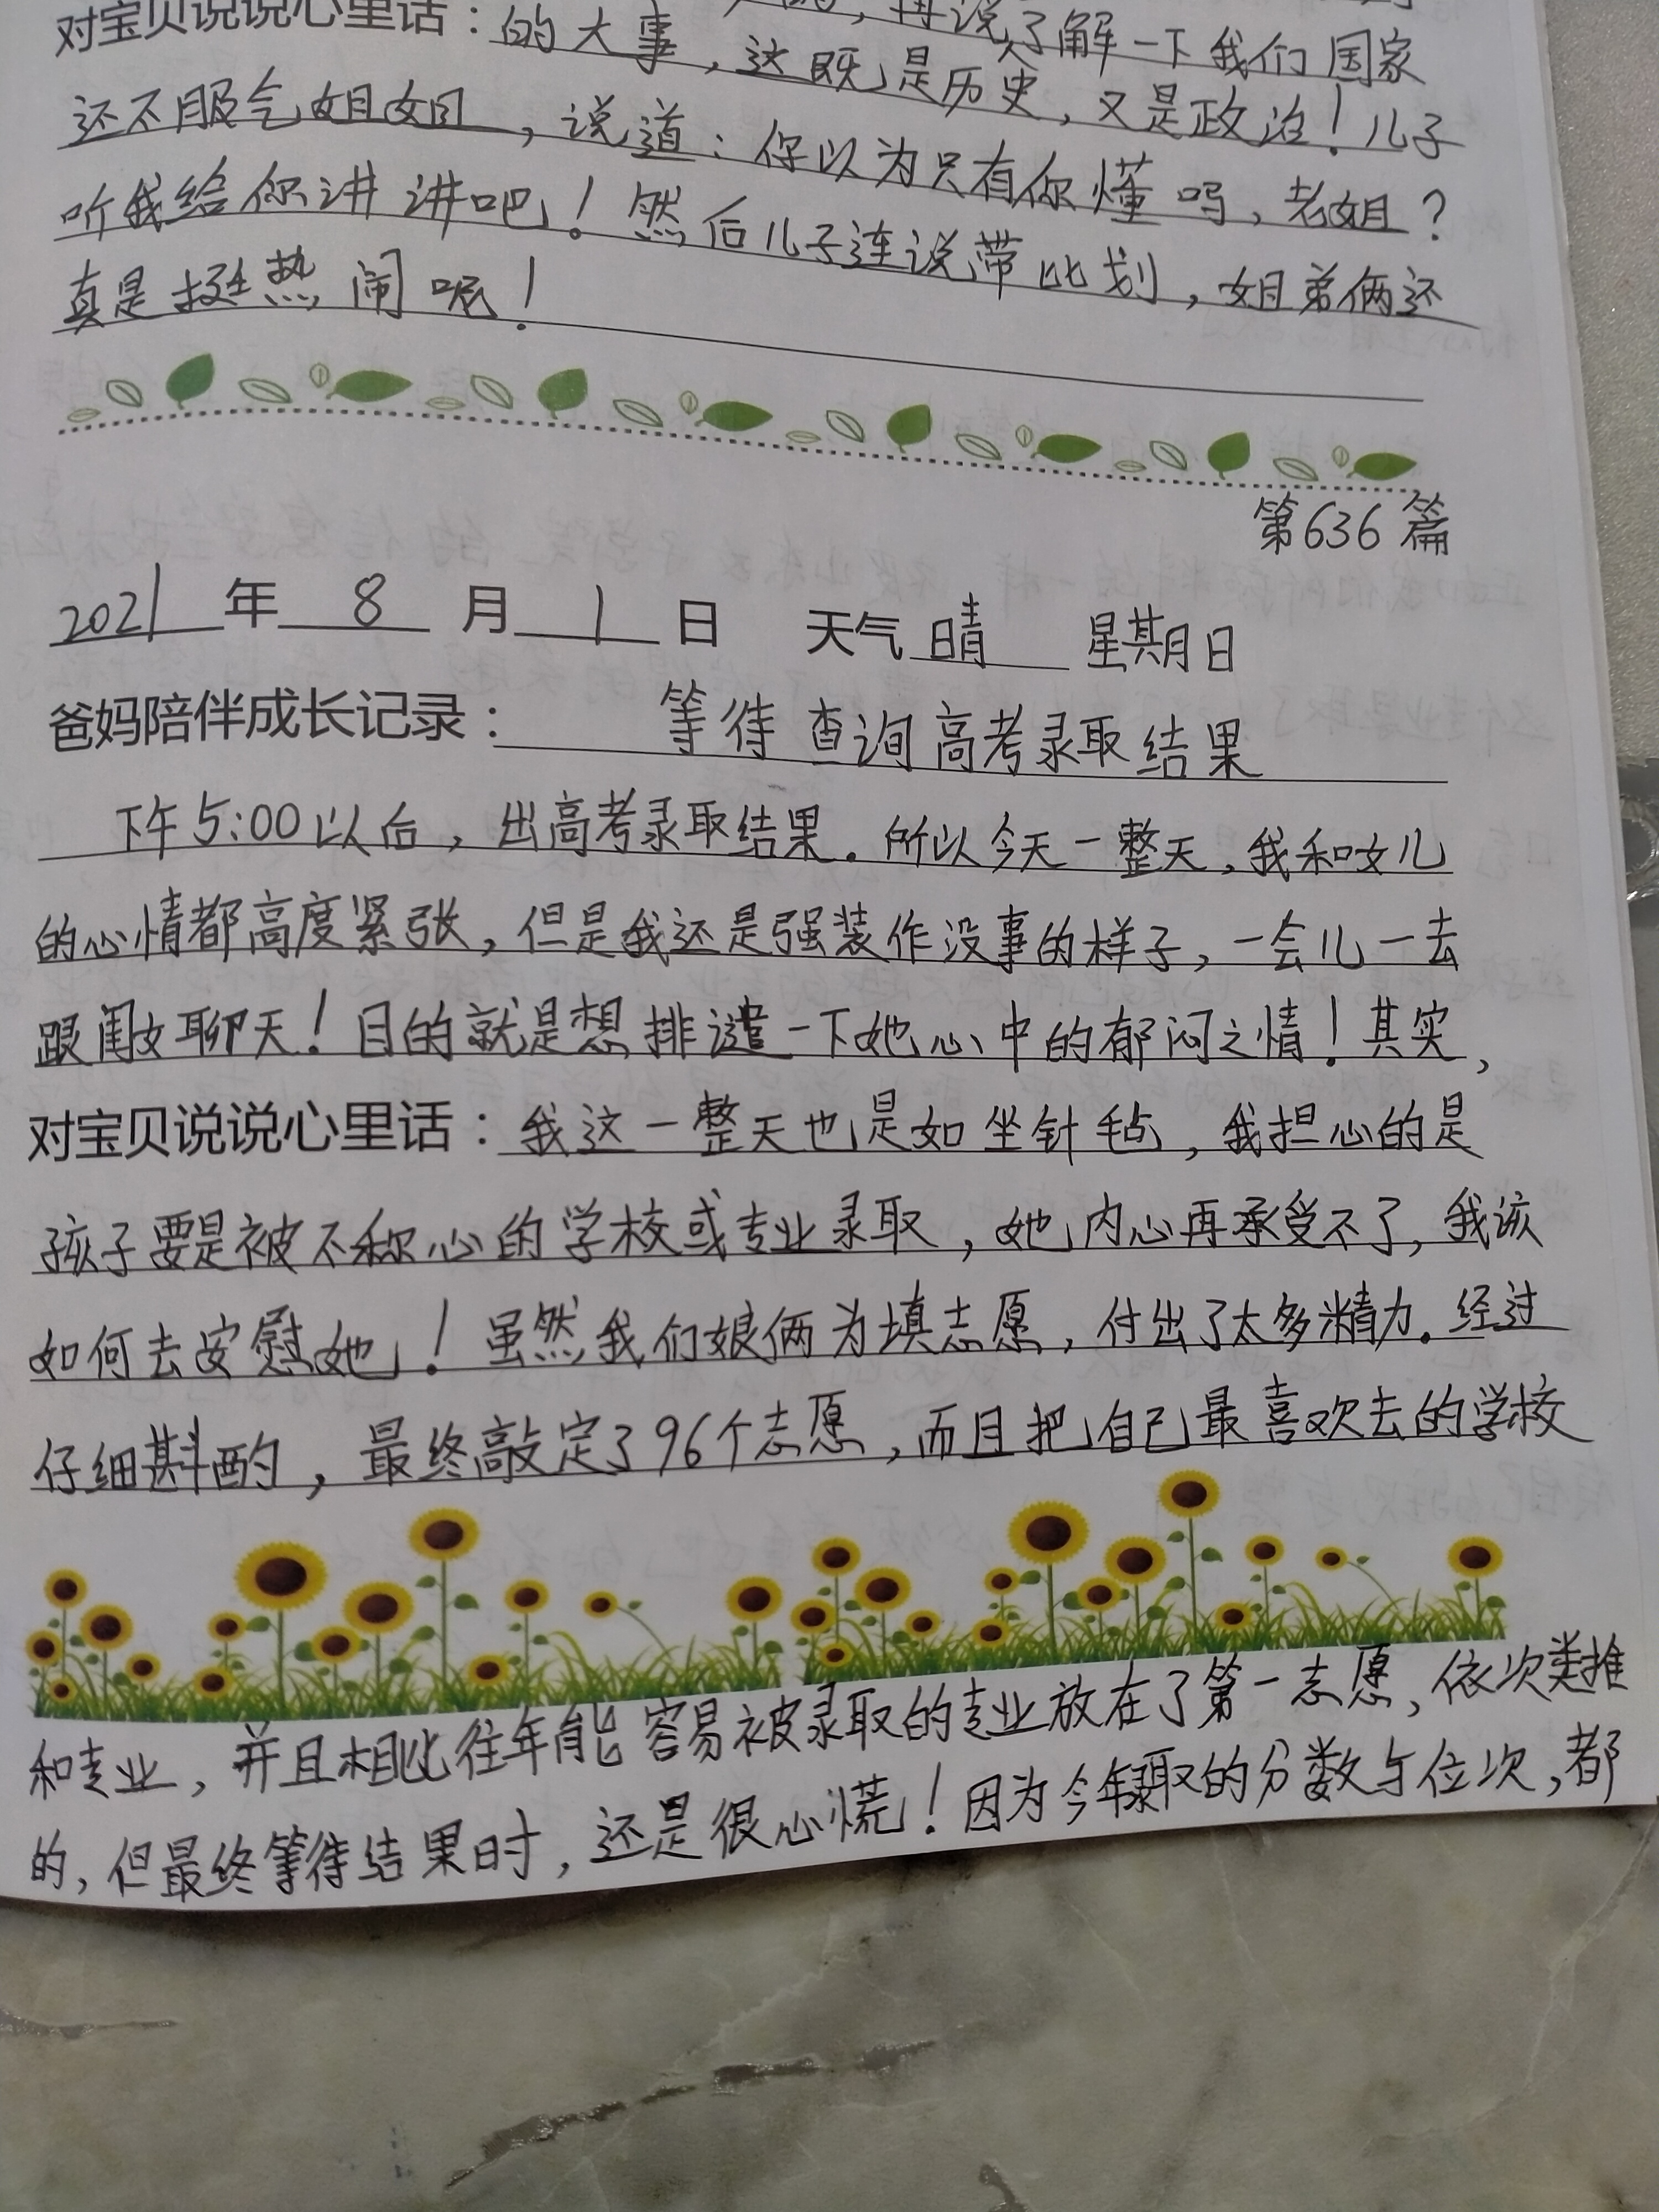 对宝贝说说心里话：的大事，这既是历史，又是政治！儿子
再说了解一下我们国家
还不服气姐姐，说道：你以为只有你懂吗，老姐？
听我给你讲讲吧！然后儿子连说带比划，姐弟俩还
真是挺热闹呢！
第636篇
2021年8月1日 天气晴 星期日
爸妈陪伴成长记录：等待查询高考录取结果
下午5:00以后，出高考录取结果。所以今天一整天，我和女儿
的心情都高度紧张，但是我还是强装作没事的样子，一会儿一去
跟闺女聊天！目的就是想排谴一下她心中的郁闷之情！其实，
对宝贝说说心里话：我这一整天也是如坐针毡，我担心的是
孩子要是被不称心的学校或专业录取，她内心再承受不了，我该
如何去安慰她！虽然我们娘俩为填志愿，付出了太多精力。经过
仔细斟酌，最终敲定了96个志愿，而且把自己最喜欢去的学校
和专业，并且相比往年能容易被录取的专业放在了第一志愿，依次类推
的，但最终等待结果时，还是很心慌！因为今年录取的分数与位次，都